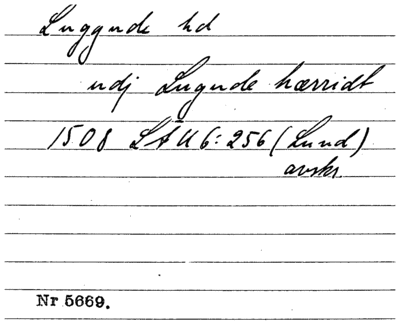 Luggude hd
udj Lugude hærridt
1508 LÄU6: 256 (Lund)
avskr.
Nr 5669.